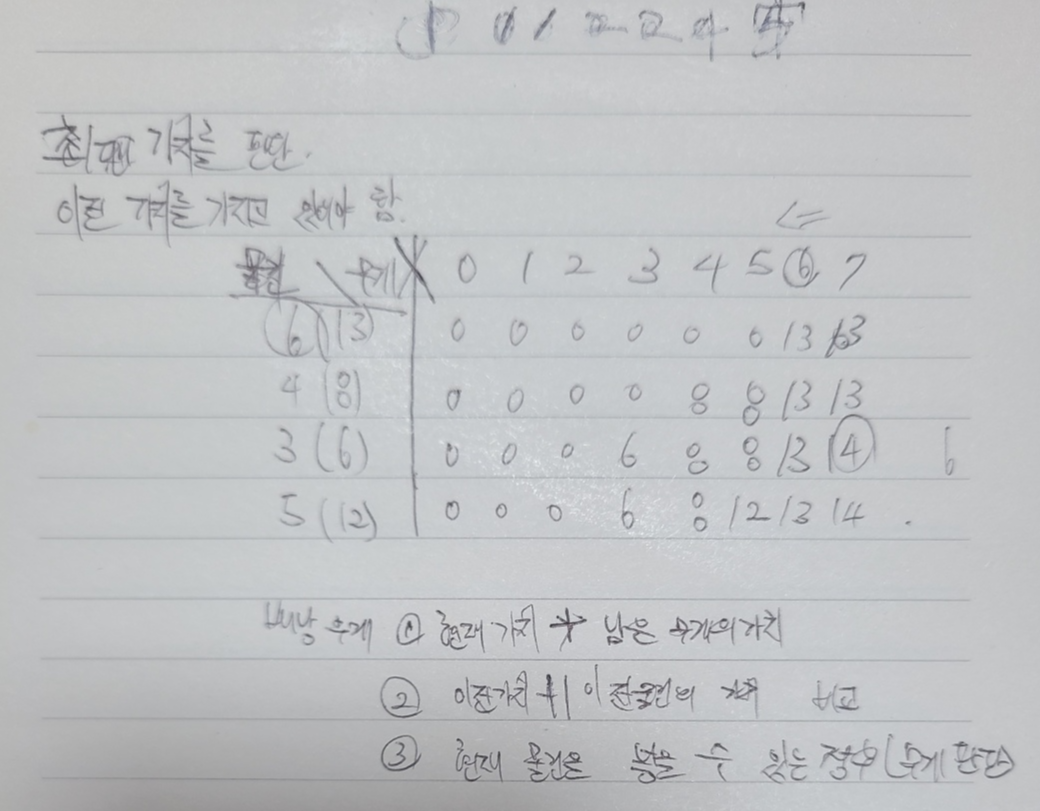 가치를 판단.
이전 가치를 가지고 있어야 함.
<=
물건 \ 무게 0 1 2 3 4 5 6 7
(6)(13) 0 0 0 0 0 0 13 13
4 (8) 0 0 0 0 8 8 13 13
3 (6) 0 0 0 6 8 8 13 14 6
5 (12) 0 0 0 6 8 12 13 14 .
배낭 무게 ① 현재 가치 + 남은 무게의 가치
② 이전가치 이전물건의 비교
③ 현재 물건은 넣을 수 있는 경우(무게 판단)